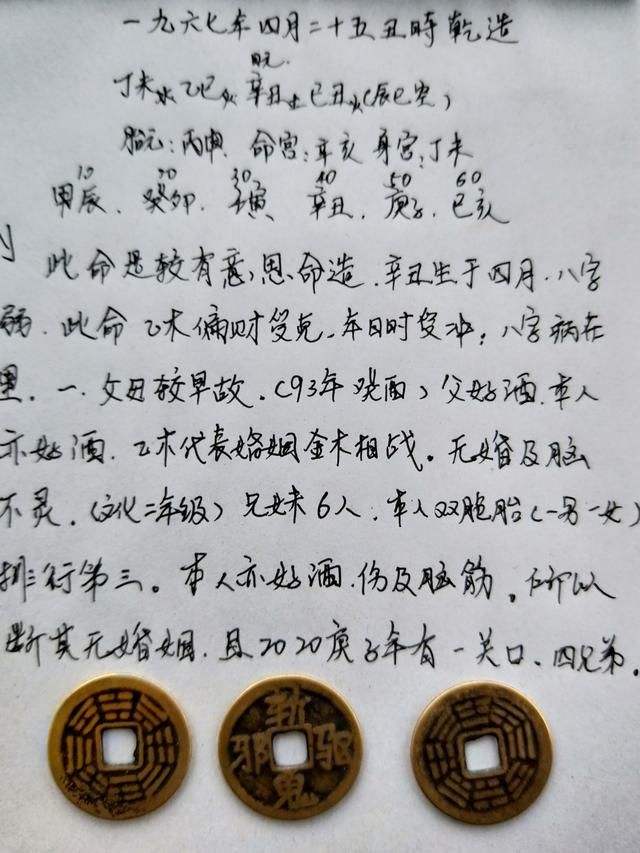 一九六七年四月二十五丑時乾造
日元
丁未水 乙巳火 辛丑土 己丑火(辰巳空)
胎元:丙申 命宫:辛亥 身宫:丁未
10 20 30 40 50 60
甲辰、癸卯、壬寅、辛丑、庚子、己亥
此命是较有意思命造.辛丑生于四月.八字
弱.此命乙木偏财受克.年日时受冲;八字病在
里.一.父母较早故.(93年癸酉)父好酒.本人
亦好酒.乙木代表婚姻金木相战。无婚及脑
不灵.(文化二年级)兄妹6人.本人双胞胎(一男一女)
排行第三。本人亦好酒.伤及脑筋。所以
断其无婚姻.且2020庚子年有一关口、四兄弟。
斩
邪 驱
鬼